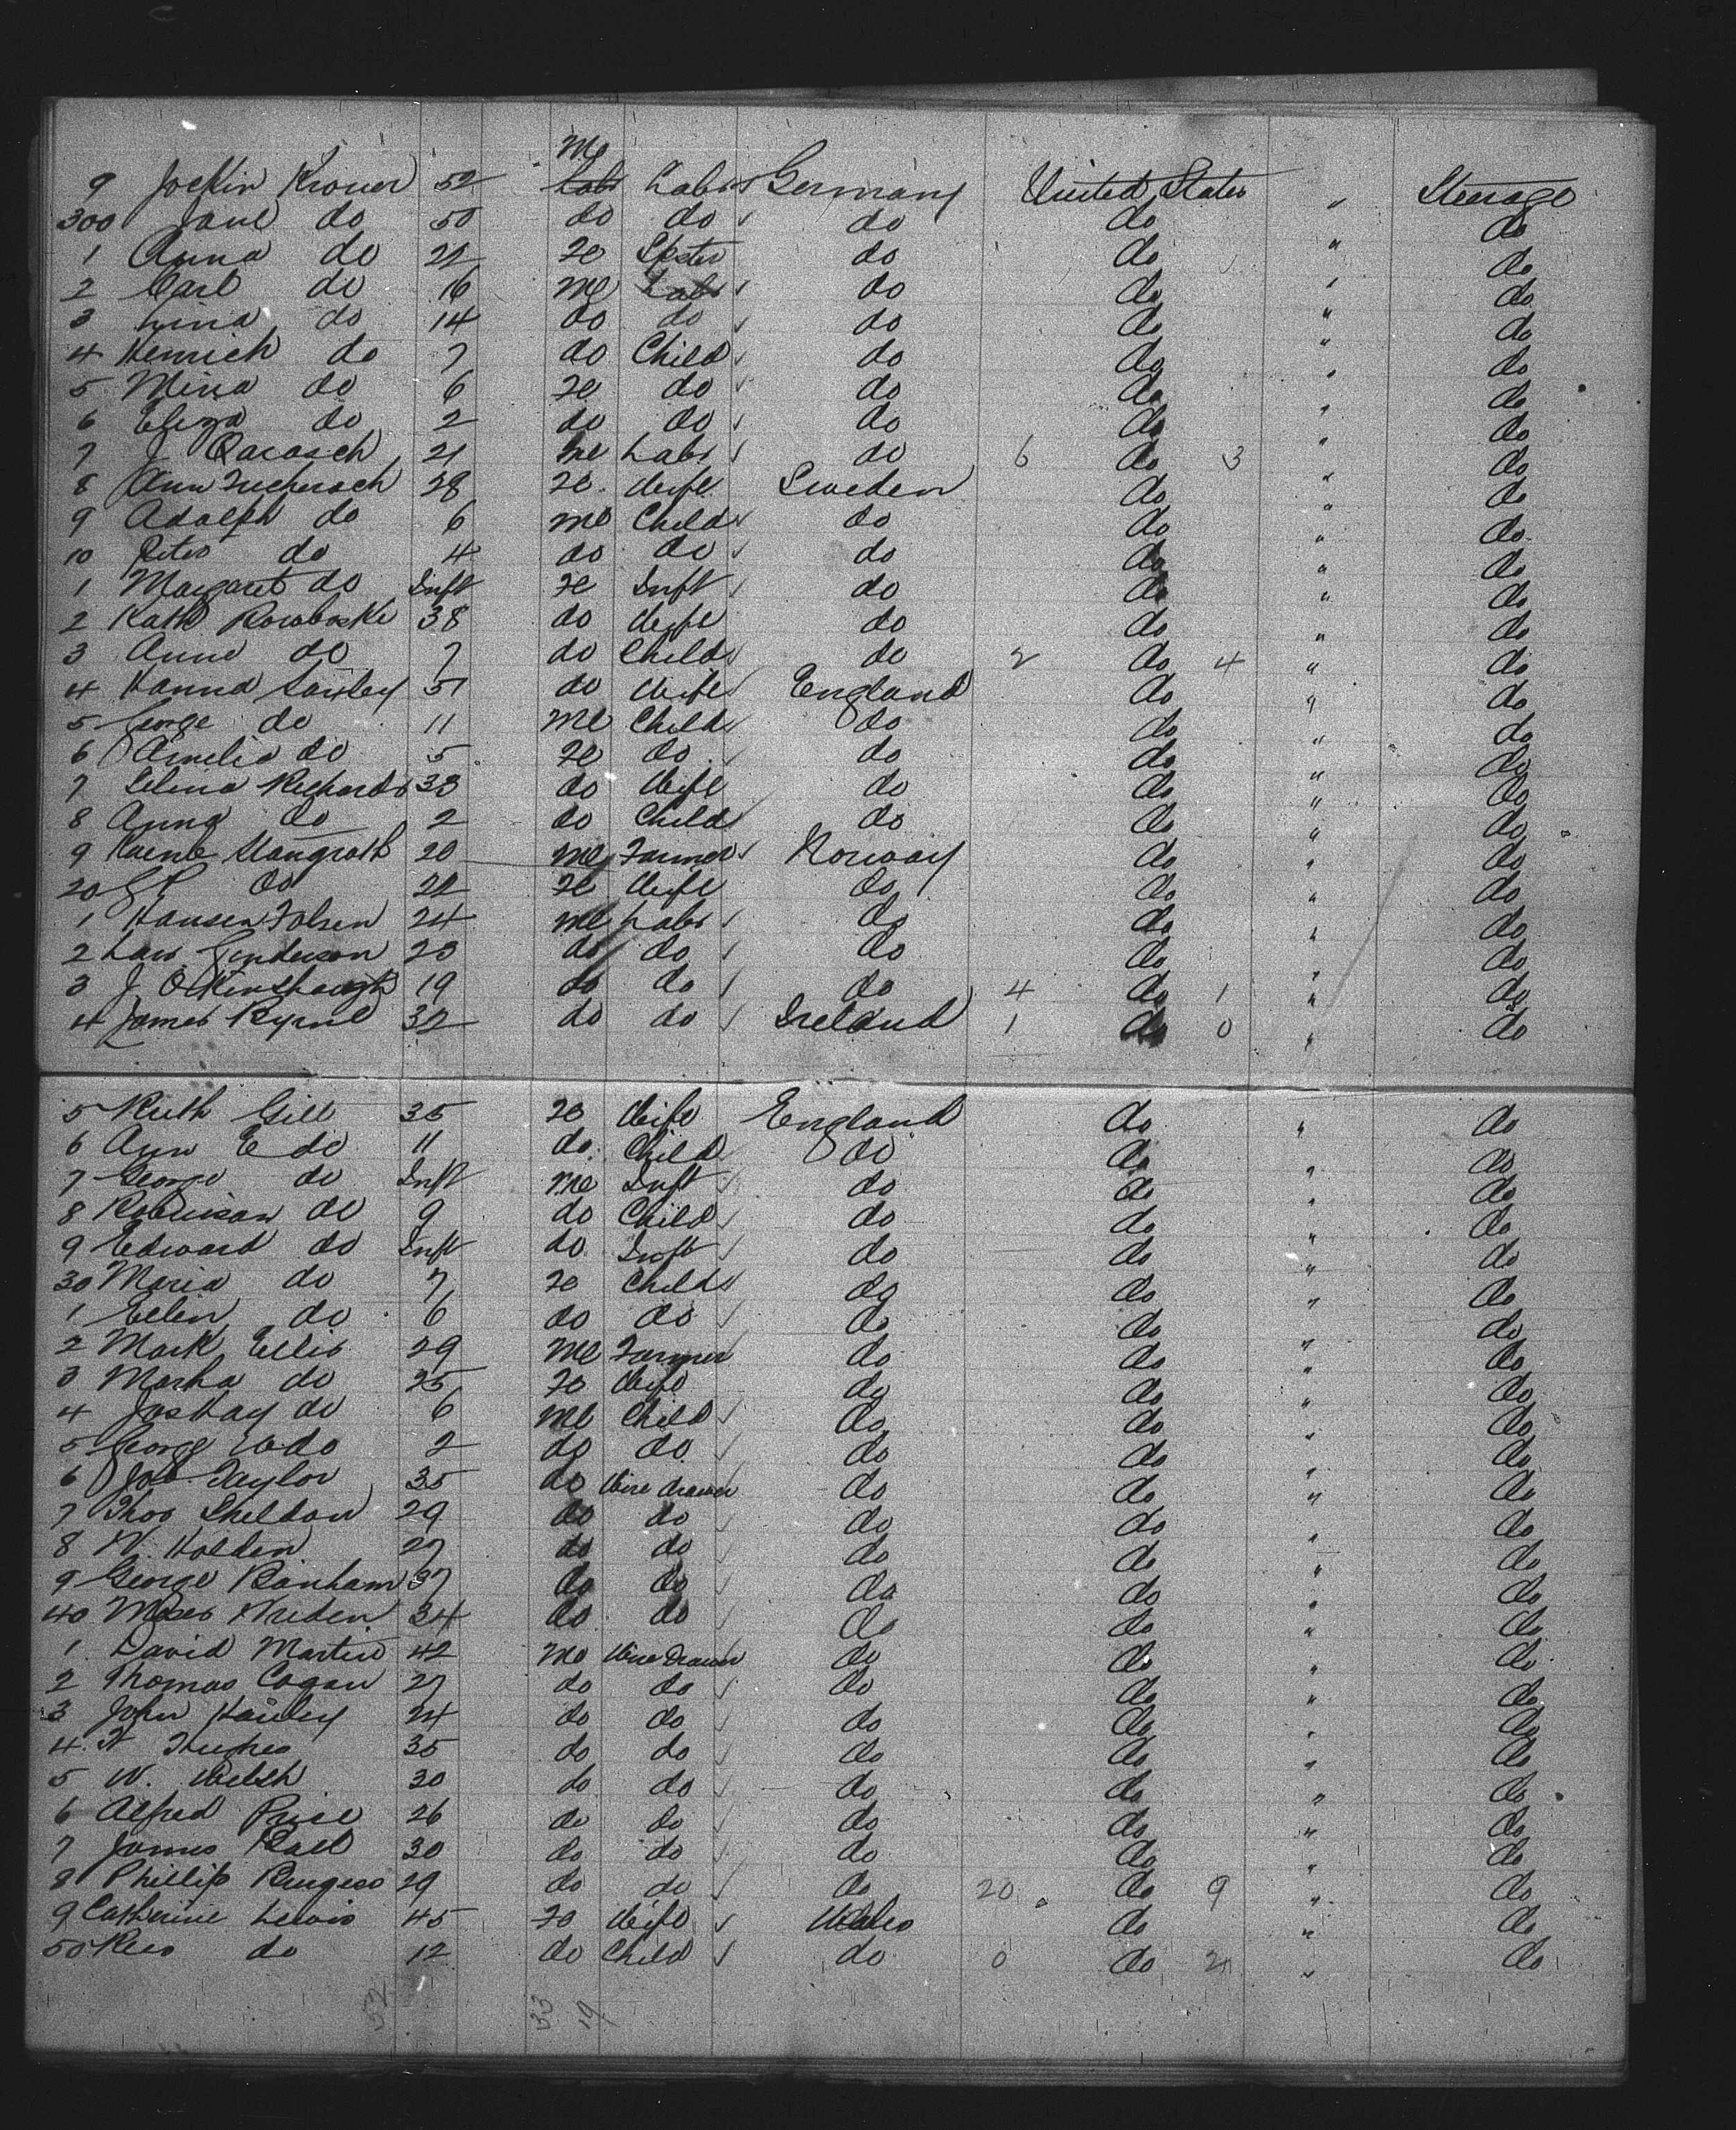 9 Jockin Kroner 52 Me Labr Labr Germany United States " Steerage
300 Jane do 50 do do do do do
1 Anna do 22 Fe Spster do do " do
2 Carl do 16 Me Labr do do " do
3 Lina do 14 do do do do " do
4 Henrich do 7 do Child do do " do
5 Mina do 6 Fe do do do " do
6 Eliza do 2 do do do do " do
7 J 21 Me Labr do 6 do 3 " do
8 Ann 28 Fe Wife Sweden do " do
9 Adolph do 6 Me Child do do " do
10 Peter do 4 do do do do " do
1 Margaret do Inft Fe Inft do do " do
2 Kath Rowboski 38 do Wife do do " do
3 Anne do 7 do Child do 2 do 4 " do
4 Hanna 51 do Wife England do " do
5 George do 11 Me Child do do " do
6 Amelia do 5 Fe do do do " do
7 Selina Richards 33 do Wife do do " do
8 Anna do 2 do Child do do " do
9 20 Me Farmer Norway do " do
20 do 22 Fe Wife do do " do
1 Hansen Folsen 24 Me Labr do do " do
2 Lars Gunderson 23 do do do do " do
3 J 19 do do do 4 do 1 " do
4 James Byrne 32 do do Ireland 1 do 0 " do
5 Ruth Gill 35 Fe Wife England do " do
6 Ann E do 11 do Child do do " do
7 George do Inft Me Inft do do " do
8 Robinson do 9 do Child do do " do
9 Edward do Inft do Inft do do " do
30 Maria do 7 Fe Child do do " do
1 Ellen do 6 do do do do " do
2 Mark Ellis 29 Me Farmer do do " do
3 Marha do 25 Fe Wife do do " do
4 do 6 Me Child do do " do
5 George W do 2 do do do do " do
6 Jos Taylor 35 do Wire drawer do do " do
7 Thos Sheldon 29 do do do do " do
8 W. Holden 27 do do do do " do
9 George Banham 37 do do do do " do
40 Moses 34 do do do do " do
1 David Martin 42 Me Wire Drawer do do " do
2 Thomas Cogan 27 do do do do " do
3 John 24 do do do do " do
4 Hughes 35 do do do do " do
5 W. Welsh 30 do do do do " do
6 Alfred Price 26 do do do do " do
7 James Ball 30 do do do do " do
8 Phillip Burgess 29 do do do 20 do 9 " do
9 Catherine Lewis 45 Fe Wife Wales do " do
50 Rees do 12 do Child do 0 do 2 " do
52 33 19